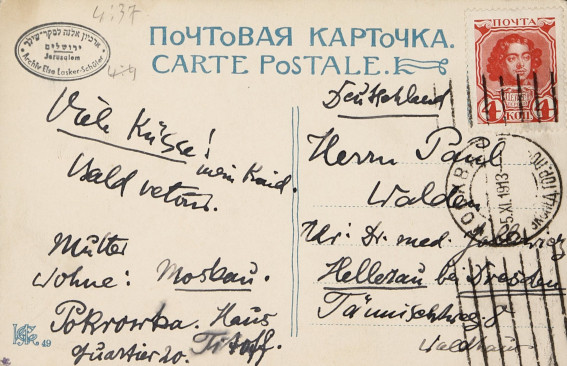 4:37
ארכיון אלזה לסקר-שילר
ירושלים
Jerusalem
Archiv Else Lasker-Schüler
ПОЧТОВАЯ КАРТОЧКА.
CARTE POSTALE.
ПОЧТА
4 КОП 4
МОСКВА
5.XI.1913
Viele Küsse!
mein Kind.
bald
Mutter
wohne: Moskau.
Pokrowka. Haus
Quartier 20. Titoff.
49
Deutschland
Herrn Paul
Walden
Dr. med.
Hellerau bei Dresden
Tännichtweg 8
Waldhaus